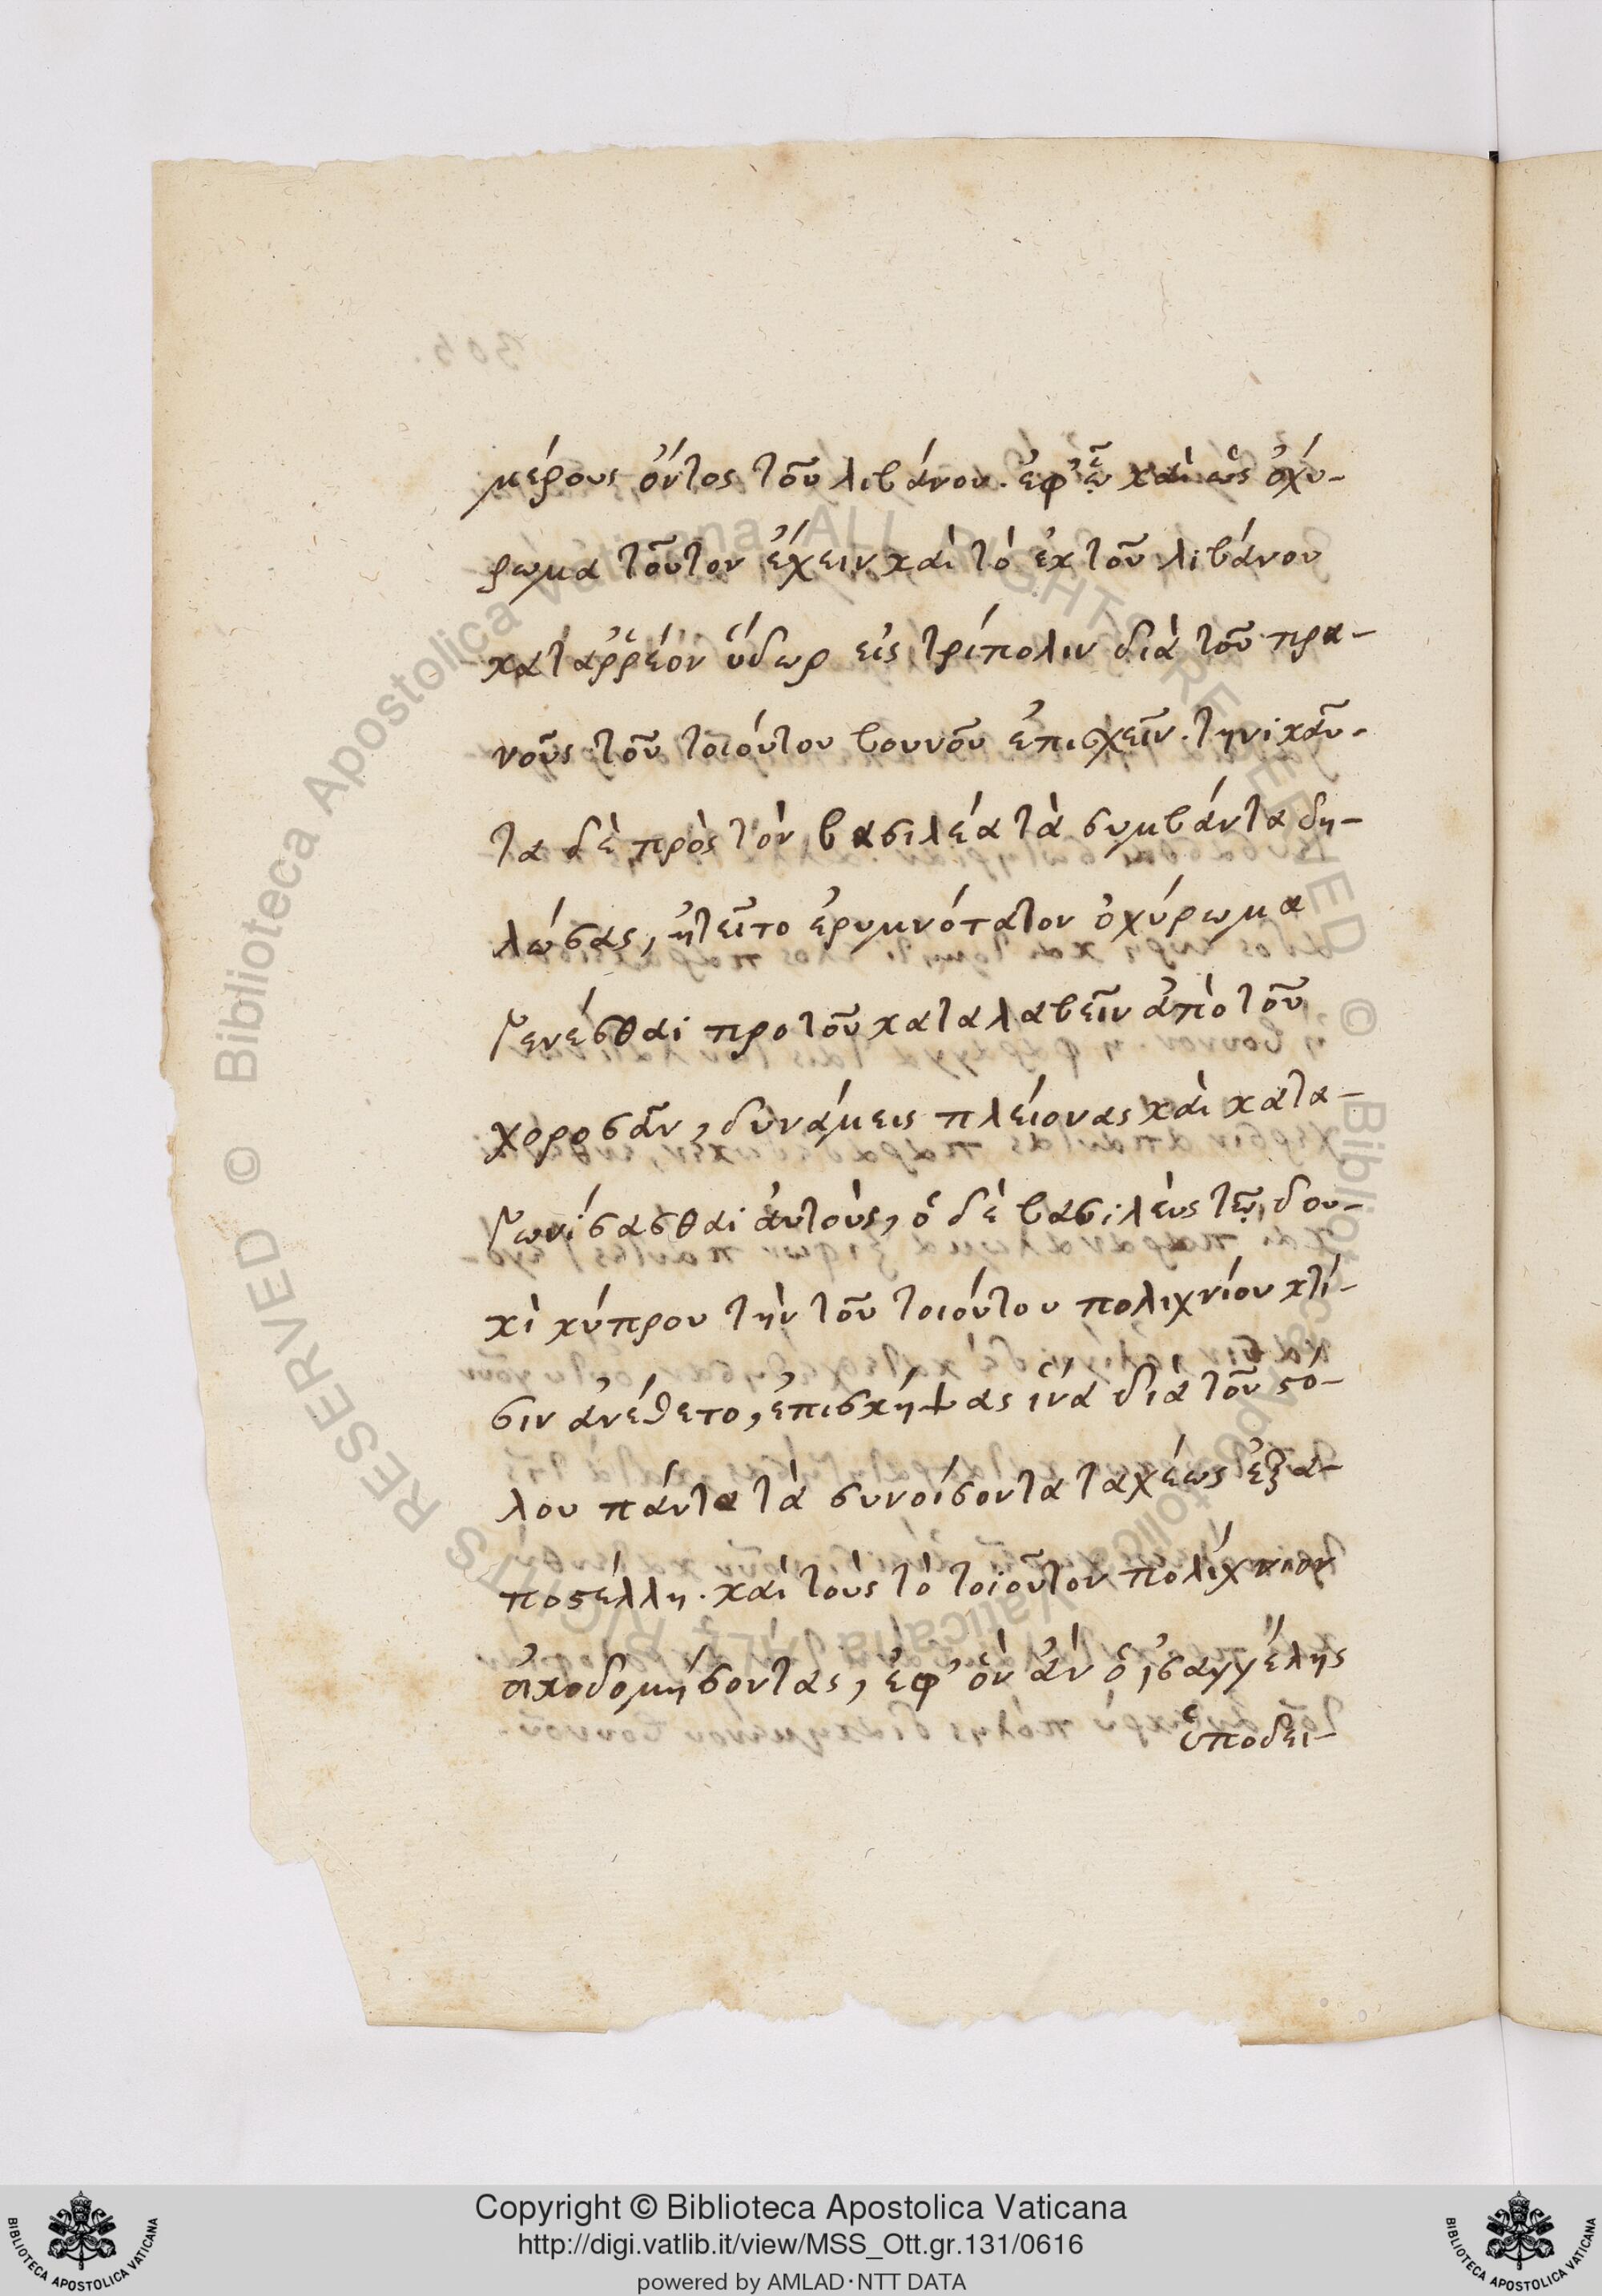 μέρους ὄντος τοῦ λιβάνου. ἐφ' ᾧ καὶ ὡς ὀχύ-
ρωμα τοῦτον ἔχειν καὶ τὸ ἐκ τοῦ λιβάνου
καταῤῥέον ὕδωρ εἰς τρίπολιν διὰ τοῦ πρα-
νοῦς τοῦ τοιούτου βουνοῦ ἐπισχεῖν. τηνικαῦ-
τα δὲ πρὸς τὸν βασιλέα τὰ συμβάντα δη-
λώσας, ᾐτεῖτο ἐρυμνότατον ὀχύρωμα
γενέσθαι προτοῦ καταλαβεῖν ἀπὸ τοῦ
χοροσᾶν, δυνάμεις πλείονας καὶ κατα-
γωνίσασθαι ἀυτοὺς, ὁ δὲ βασιλεὺς τῷ δου-
κὶ κύπρου τὴν τοῦ τοιούτου πολιχνίου κτί-
σιν ἀνέθετο, ἐπισκήψας ἵνα διὰ τοῦ στό-
λου πάντα τὰ συνοίσοντα ταχέως ἐξα-
ποστέλλη. καὶ τοὺς τὸ τοιοῦτον πολίχνιον
οἰκοδομήσοντας, ἐφ' ὃν ἂν ὁ ἰσαγγέλης
ὑποδει-
Copyright © Biblioteca Apostolica Vaticana
http://digi.vatlib.it/view/MSS_Ott.gr.131/0616
powered by AMLAD·NTT DATA
BIBLIOTECA APOSTOLICA VATICANA
BIBLIOTECA APOSTOLICA VATICANA